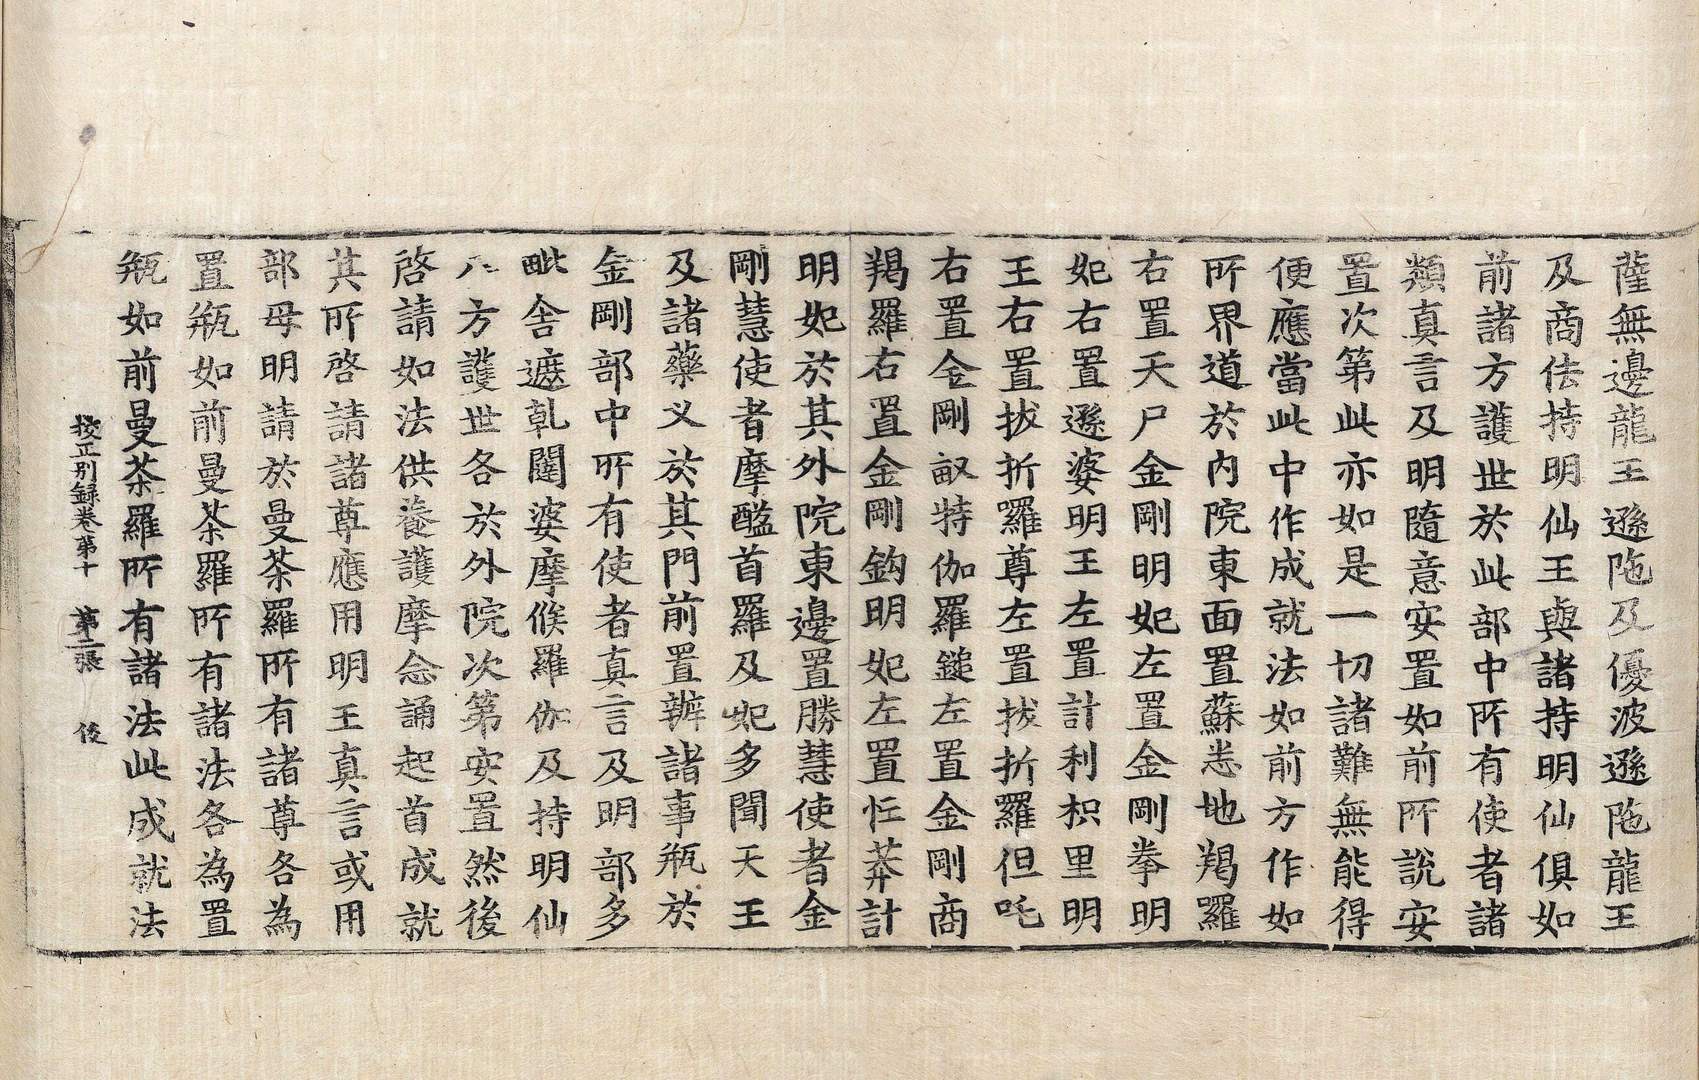 薩無邊龍王遜陁及優波遜陁龍王
及商佉持明仙王與諸持明仙俱如
前諸方護世於此部中所有使者諸
類真言及明隨意安置如前所說安
置次第此亦如是一切諸難無能得
便應當此中作成就法如前方作如
所界道於內院東面置蘇悉地羯羅
右置天尸金剛明妃左置金剛拳明
妃右置遜婆明王左置計利枳里明
王右置拔折羅尊左置拔折羅但吒
右置金剛瞂特伽羅鎚左置金剛商
羯羅右置金剛鈎明妃左置忙莽計
明妃於其外院東邊置勝慧使者金
剛慧使者摩醯首羅及妃多聞天王
及諸藥叉於其門前置辦諸事瓶於
金剛部中所有使者真言及明部多
毗舍遮乹闥婆摩㬋羅伽及持明仙
八方護世各於外院次第安置然後
啓請如法供養護摩念誦起首成就
其所啓請諸尊應用明王真言或用
部母明請於曼荼羅所有諸尊各為
置瓶如前曼荼羅所有諸法各為置
瓶如前曼荼羅所有諸法此成就法
挍正別録卷第十 第二張 俊